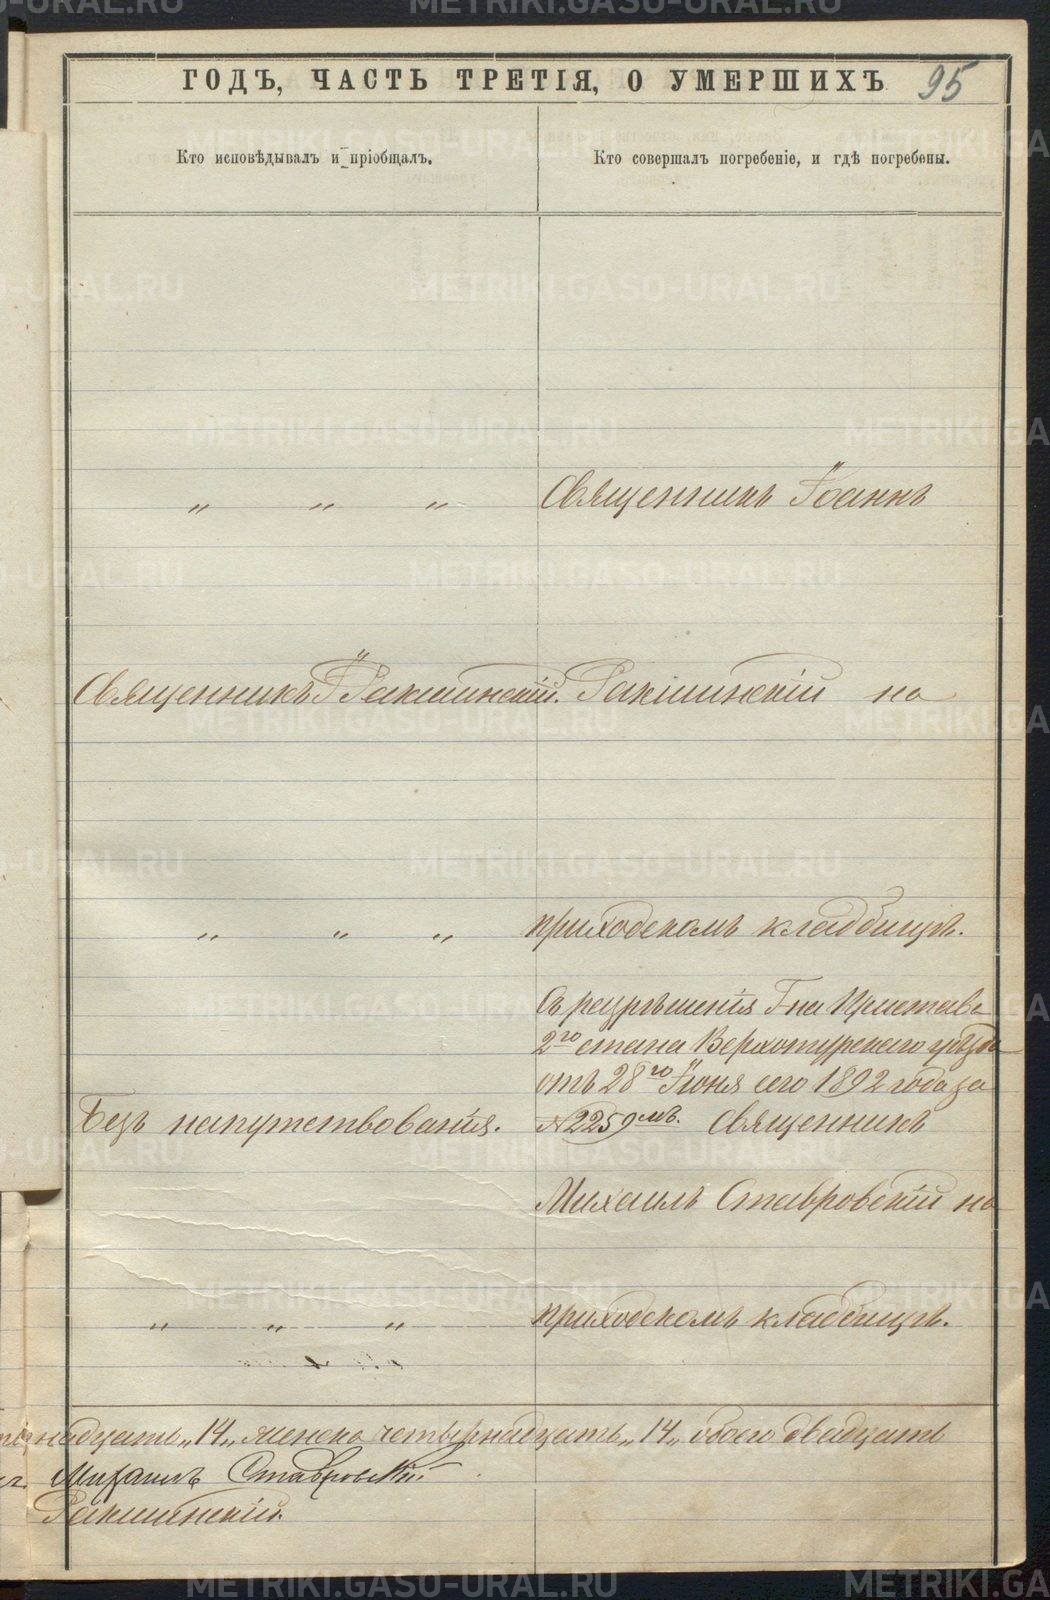 ГОДЪ, ЧАСТЬ ТРЕТІЯ, О УМЕРШИХЪ
95
Кто исповѣдывалъ и пріобщалъ.
Кто совершалъ погребеніе, и гдѣ погребены.
„ „ „
Священникъ Іоаннъ
Священникъ І Ракшинскій.
Ракшинскій на
„ „ „
приходскомъ кладбищѣ.
Съ разрѣшенія Гна Пристава
2го стана Верхотурскаго уѣзда
отъ 28го Іюня сего 1892 года за
Безъ напутствованія.
№ 2259мъ. Священникъ
Михаилъ Ставровскій на
„ „ „
приходскомъ кладбищѣ.
надцать „14„ женска четырнадцать „14„ обоего двадцать
Михаилъ Ставровскій
Ракшинскій.
METRIKI.GASO-URAL.RU